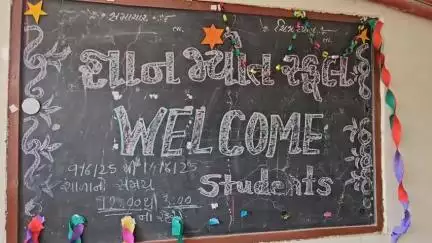 * સમાચાર *
* ચિત્ર *
જ્ઞાન જ્યોત સ્કૂલ
WELCOME
9/6/25 થી 14/6/25
શાળાનો સમય
Students
12:00 થી 3:00
ના રહેશે